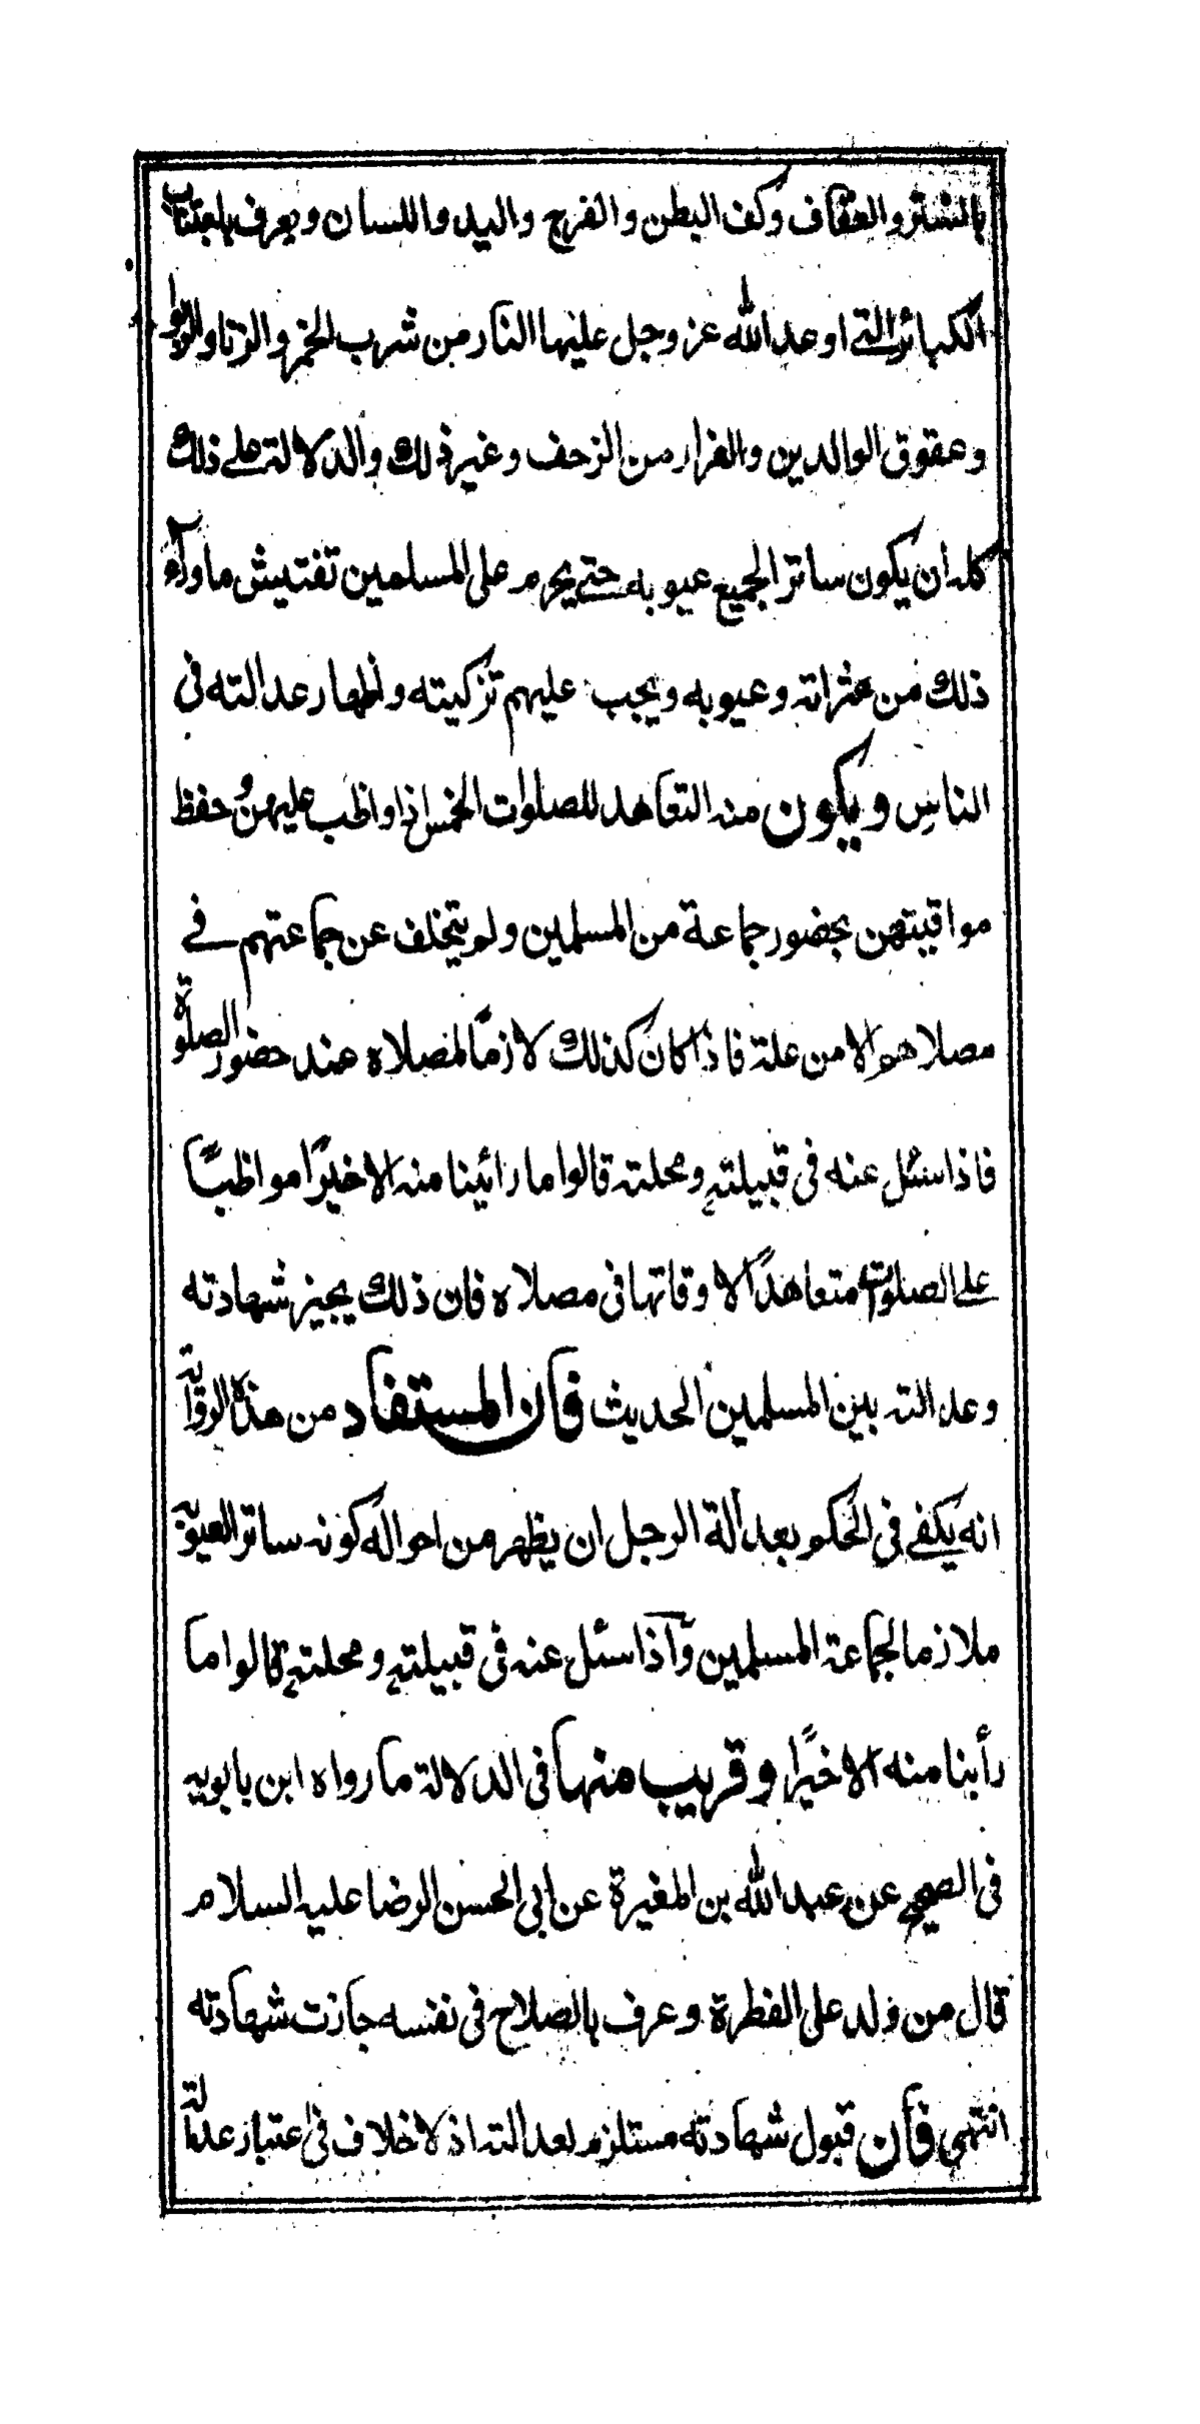 بالستر والعفاف وكف البطن والفرج واليد واللسان ويعرف باجتناب
الكبائر التي اوعد الله عز وجل عليها النار من شرب الخمر والزنا والربوا
وعقوق الوالدين والفرار من الزحف وغير ذلك والدلالة على ذلك
كله ان يكون ساتر الجميع عيوبه حتى يحرم على المسلمين تفتيش ما وراء
ذلك من عثراته وعيوبه ويجب عليهم تزكيته واظهار عدالته في
الناس ويكون منه التعاهد للصلوات الخمس اذا واظب عليهن وحفظ
مواقيتهن بحضور جماعة من المسلمين ولم يتخلف عن جماعتهم في
مصلاهم الا من علة فاذا كان كذلك لازمًا لمصلاه عند حضور الصلوة
فاذا سئل عنه في قبيلته ومحلته قالوا ما رائينا منه الا خيرًا مواظبًا
على الصلوات متعاهدًا لاوقاتها في مصلاه فان ذلك يجيز شهادته
وعدالته بين المسلمين الحديث فان المستفاد من هذه الرواية
انه يكفي في الحكم بعدالة الرجل ان يظهر من احواله كونه ساتر العيوبه
ملازما لجماعة المسلمين وآذا سئل عنه في قبيلته ومحلته قالوا ما
رأينا منه الا خيرًا وقريب منها في الدلالة ما رواه ابن بابويه
في الصحيح عن عبد الله بن المغيرة عن ابي الحسن الرضا عليه السلام
قال من ولد على الفطرة وعرف بالصلاح في نفسه جازت شهادته
انتهى فان قبول شهادته مستلزم لعدالته اذ لا خلاف في اعتبار عدالة